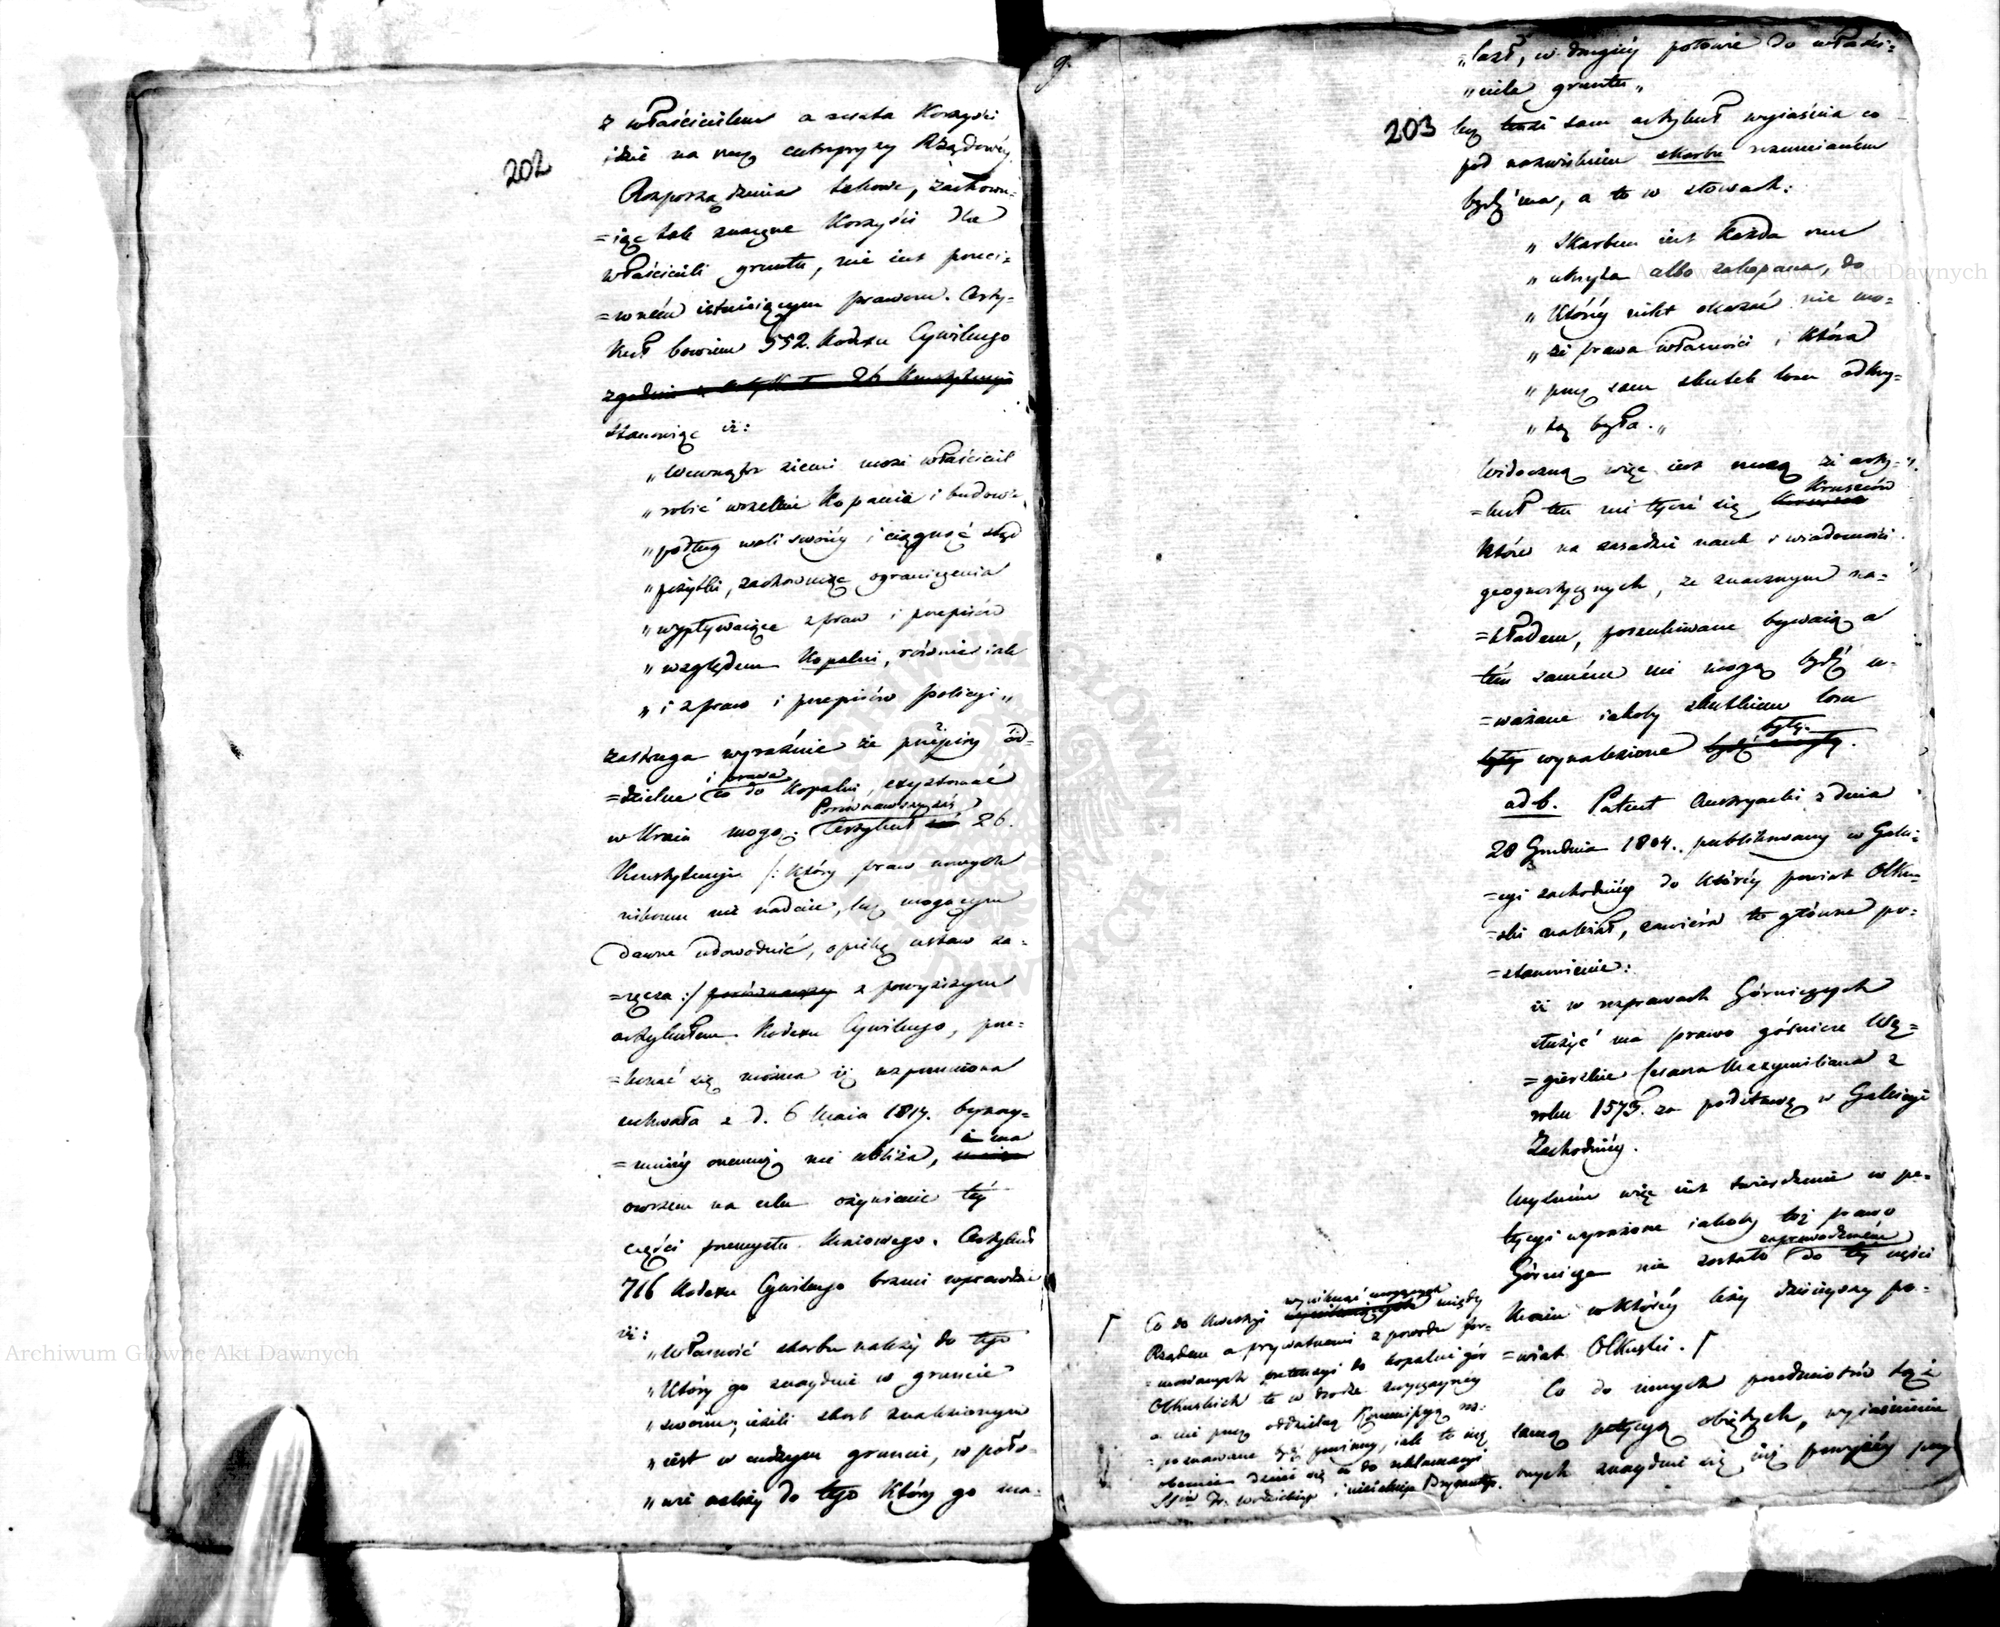 202
z właścicielem a reszta korzyści
idzie na rzecz entrepryzy Rządowéy.
Rozporządzenia takowe, zachowu=
=iąc tak znaczne korzyści dla
właścicieli gruntu, nie iest przeci=
=wném istnieiącym prawom. Arty=
kuł bowiem 552. Kodexu Cywilnego
zgodnie z artykułem 26 Konstytucyi
stanowiąc iż:
„Wewnątrz ziemi może właściciel
„robić wszelkie kopania i budowle
„podług woli swoiéy i ciągnąć ztąd
„pożytki, zachowuiąc ograniczenia
„wypływaiące z praw i przepisów
„względem kopalni, równie iak
„i z praw i przepisów policyi„
zastrzega wyraźnie że przepisy od=
i prawa
=dzielne co do kopalni, exystować
Porównawszy zaś
w Kraiu mogą. Artykuł 26.
Konstytucyi /: który praw nowych
nikomu nie nadaie, lecz mogącym
dawne udowodnić, opiekę ustaw za=
=ręcza :/ porównawszy z powyższym
artykułem Kodexu Cywilnego, prze=
=konać się można iż wspomniona
uchwała z d. 6 Maia 1817. bynay=
=mniéy onemuż nie ubliża, i ma
owszem na celu ożywienie téy
części przemysłu Kraiowego. Artykuł
716 Kodexu Cywilnego brzmi wprawdzie
iż:
„Własność skarbu należy do tego
„który go znayduie w gruncie
„swoim; ieżeli skarb znalezionym
„iest w cudzym gruncie, w poło=
„wie należy do tego który go zna=
9.
203
„lazł, w drugiéy połowie do właści=
„ciela gruntu„
lecz tenże sam artykuł wyiaśnia co
pod nazwiskiem skarbu rozumianém
bydź ma, a to w słowach:
„Skarbem iest każda rzecz
„ukryta albo zakopana, do
„któréy nikt okazać nie mo=
„że prawa własności i która
„przez sam skutek losu odkry=
„tą była.„
Widoczną więc iest rzeczą że arty=
kruszców
=kuł ten nie tycze się
które na zasadzie nauk i wiadomości
geognostycznych, ze znacznym na=
=kładem, poszukiwane bywaią a
tém samém nie mogą bydź u=
=ważane iakoby skutkiem losu
były.
były wynalezione
ad b. Patent Austryacki z dnia
28 Grudnia 1804. publikowany w Gali=
=cyi zachodniéy do któréy powiat Olku=
=ski należał, zawiéra to główne po=
=stanowienie:
iż w rozprawach Górniczych
służyć ma prawo górnicze Wę=
=gierskie Cesarza Maxymiliana z
roku 1573. za podstawę w Galicyi
Zachodniéy.
Mylném więc iest twierdzenie w pe=
tycyi wyrażone iakoby toż prawo
zaprowadzoném
Górnicze nie zostało do téy części
Kraiu w któréy leży dzisieyszy po=
=wiat Olkuski. Γ
Co do innych przedmiotów tęż
samą petycyą obiętych, wyiaśnienie
onych znayduie się iuż powyżéy przy
wyniknąć mogących
Γ Co do kwestyi między
Rządem a prywatnemi z powodu for=
=mowanych pretensyi do kopalni gór
Olkuskich te w drodze zwyczayney
a nie przez oddzielną Kommissyą roz=
=poznawane bydź powinny, iak to iuż
obecnie dzieie się co do reklamacyi